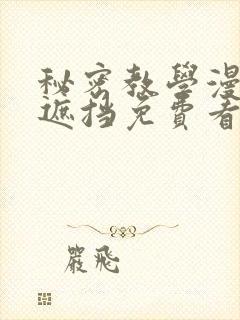 秘密教學漫
遮挡免費看
嚴飛